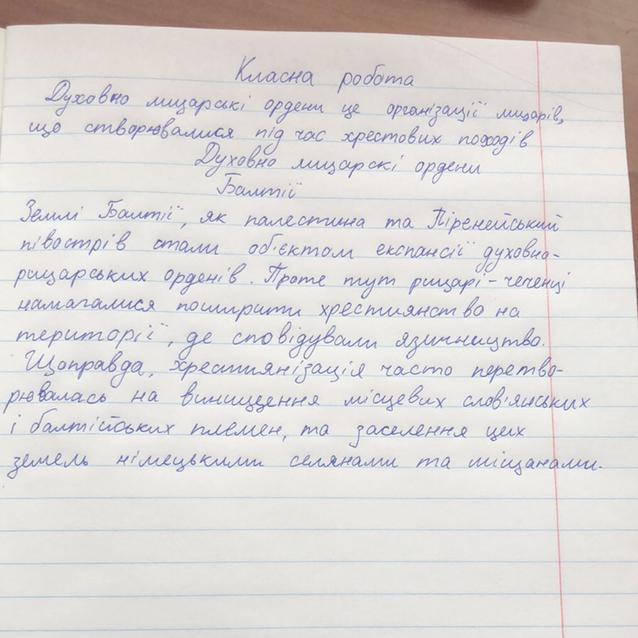 Класна робота
Духовно лицарські ордени це організації лицарів,
що створювалися під час хрестових походів
Духовно лицарскі ордени
Балтії
Землі Балтії, як палестина та Піренейський
півострів стали об'єктом експансії духовно-
рицарських орденів. Проте тут рицарі-ченці
намагалися поширити християнство на
території, де сповідували язичництво.
Щоправда, християнізація часто перетво-
рювалась на винищення місцевих слов'янських
і балтійських племен, та заселення цих
земель німецькими селянами та міщанами.